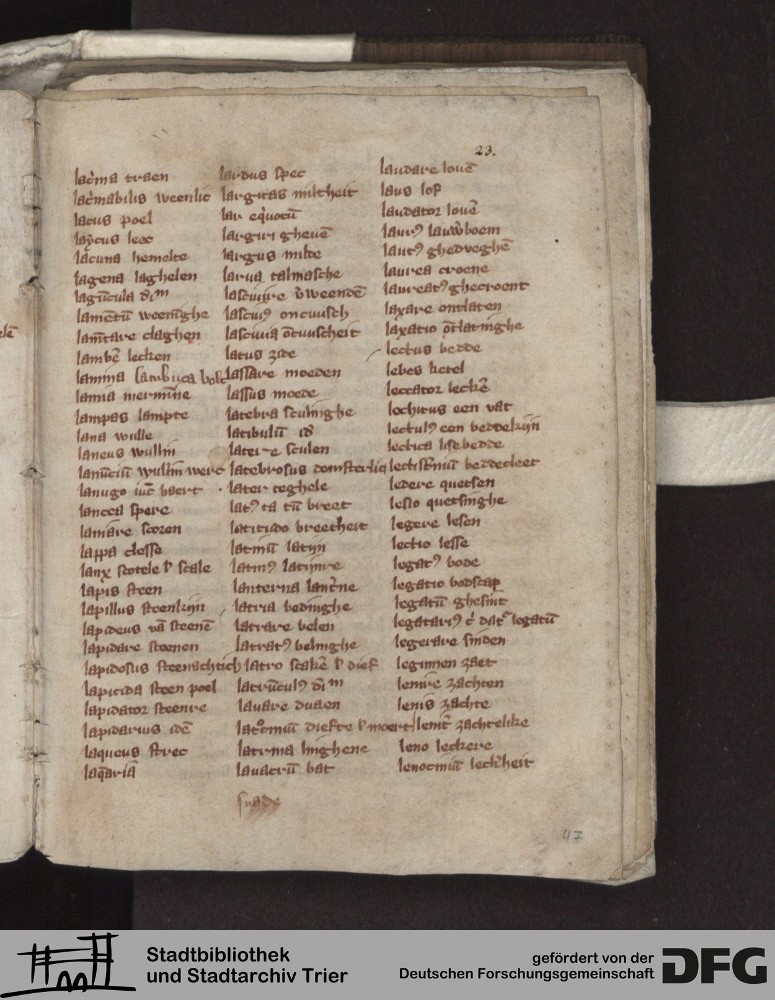 23.
lacrima traen
lacrimabilis weenlic
lacus poel
laycus leec
lacuna hemelte
lagena laghelen
laguncula dim
lamentum weeninghe
lamentare claghen
lambere lecken
lamina sambuca
lamia merminne
lampas lampte
lana wulle
laneus wullin
lanuciu wullin werc
lanugo baert
lancea spere
laniare scoren
lappa clesse
lanx scotele vel scale
lapis steen
lapillus steenkijn
lapideus van steenen
lapidare steenen
lapidosus steenachtich
lapicida steen poel
lapidator steenre
lapidarius idem
laqueus strec
laquaria
lardus spec
largitas miltheit
lar equocum
largiri gheven
largus milde
larva talmasche
lascivire
lascivus oncuusch
lascivia oncuuscheit
latus zide
lassare moeden
lassus moede
latebra sculinghe
latibulum id
latere sculen
latebrosus domsterliq
later teghele
latus ta tum breet
latitudo breetheit
latinum latijn
latinus latijnre
lanterna lanterne
latria bedinghe
latrare belen
latratus belinghe
latro scaker vel dief
latrunculus dim
lavare dwaen
latrocinium diefte vel moert
latrina
lavacrum bat
suade
laudare loven
laus lof
laudator
laurus lauwerboem
lautus ghedweghen
laurea croene
laureatus ghecroent
laxare ontlaten
laxatio ontlatinghe
lectus bedde
lebes ketel
leccator lecker
lochitus een vat
lectulus een beddekijn
lectica lisebedde
lectisternium beddecleet
ledere quetsen
lesio quetsinghe
legere lesen
lectio lesse
legatus bode
legatio bodscap
legatum ghesint
legatarius cui datur legatum
legerare sinden
legumen zaet
lenire zachten
lenis zachte
leniter zachtelike
leno leckere
lenocinium leckerheit
47
Stadtbibliothek
und Stadtarchiv Trier
gefördert von der
Deutschen Forschungsgemeinschaft
DFG